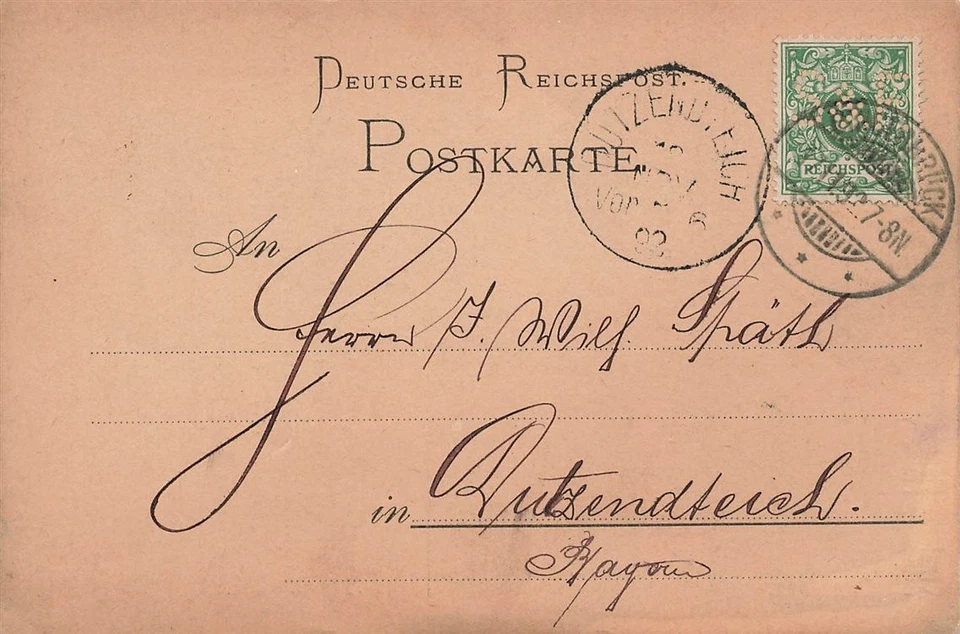 DEUTSCHE REICHSPOST.
POSTKARTE
DUTZENDTEICH
NOV
Vor
92
REICHSPOST
7-8N.
An
Herrn J. Wilh Späth
in Dutzendteich.
Bayern